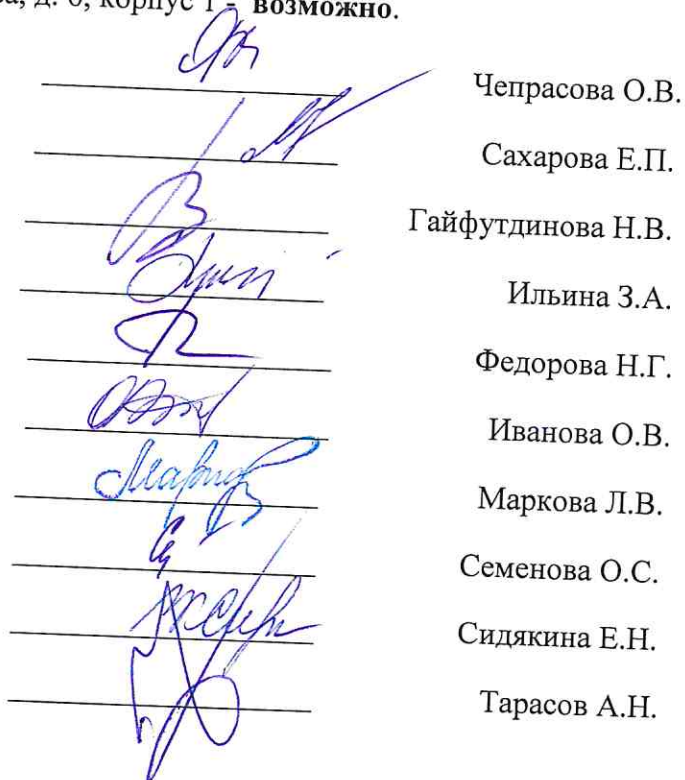 д. 6, корпус 1 - возможно.
Чепрасова О.В.
Сахарова Е.П.
Гайфутдинова Н.В.
Ильина З.А.
Федорова Н.Г.
Иванова О.В.
Маркова Л.В.
Семенова О.С.
Сидякина Е.Н.
Тарасов А.Н.